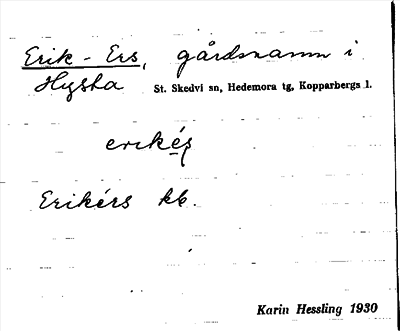 Erik-Ers, gårdsnamn i
Hysta St. Skedvi sn, Hedemora tg, Kopparbergs l.
erikés
Erikérs kb.
Karin Hessling 1930